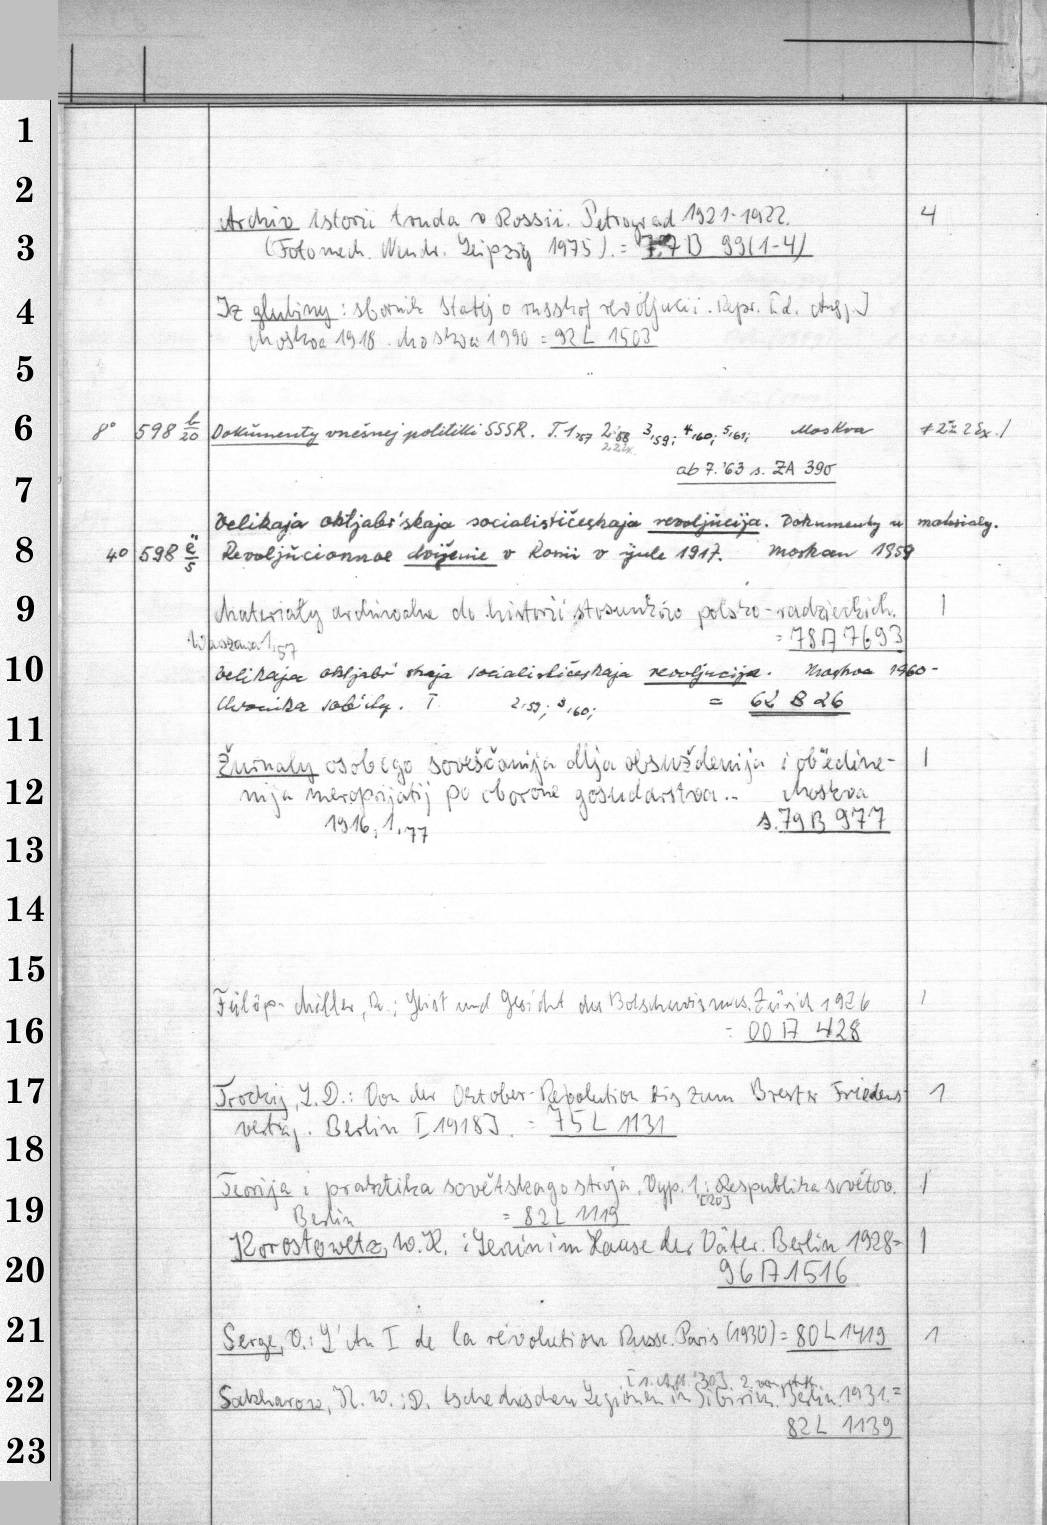 1
2
Archiv istorii truda v Rossii. Petrograd 1921-1922. 4
3 (Fotomech. Neudr. Leipzig 1975). = 77 B 99(1-4)
4 Iz glubiny: sbornik statej o russkoj revoljucii. Repr. [d. Ausg.]
Moskva 1918. Moskva 1990 = 92 L 1503
5
6 8° 598 b/20 Dokumenty vnešnej politiki SSSR. T. 1,57 2,58 3,59; 4,60; 5,61; Moskva
ab 7.'63 s. ZA 390
7
Velikaja oktjabr'skaja socialističeskaja revoljucija. Dokumenty u materialy.
8 4° 598 e/5 Revoljucionnoe dviženie v Rossii v ijule 1917. Moskau 1959
9 Materiały archiwalne do historii stosunków polsko-radzieckich. 1
Warszawa 1,57 = 78 A 7693
10 Velikaja oktjabr'skaja socialističeskaja revoljucija. Moskva 1960-
Chronika sobytij. T. 2,59; 3,60; = 62 B 26
11
Žurnaly osobego soveščanija dlja obsuždenija i ob"edine- 1
12 nija meroprijatij po oborone gosudarstva.. Moskva
1916, 1.77 s. 79 B 977
13
14
15
Fülöp-Miller, R.: Geist und Gesicht des Bolschewismus. Zürich 1926 1
16 = 00 A 428
17 Trockij, L.D.: Von der Oktober-Revolution bis zum Brester Friedens- 1
vertrag. Berlin [1918]. = 75 L 1131
18
Teorija i praktika sovětskago stroja. Vyp. 1: Respublika sovětov. 1
[20]
19 Berlin = 82 L 1119
Korostowetz, W.K.: Lenin im Hause der Väter. Berlin 1928= 1
20 96 A 1516
21 Serge, V.: L'An I de la révolution Russe. Paris (1930) = 80 L 1419 1
22 [1. Aufl. '30] 2.
Sakharow, K.W.: D. tschechischen Legionen in Sibirien. Berlin 1931.=
82 L 1139
23